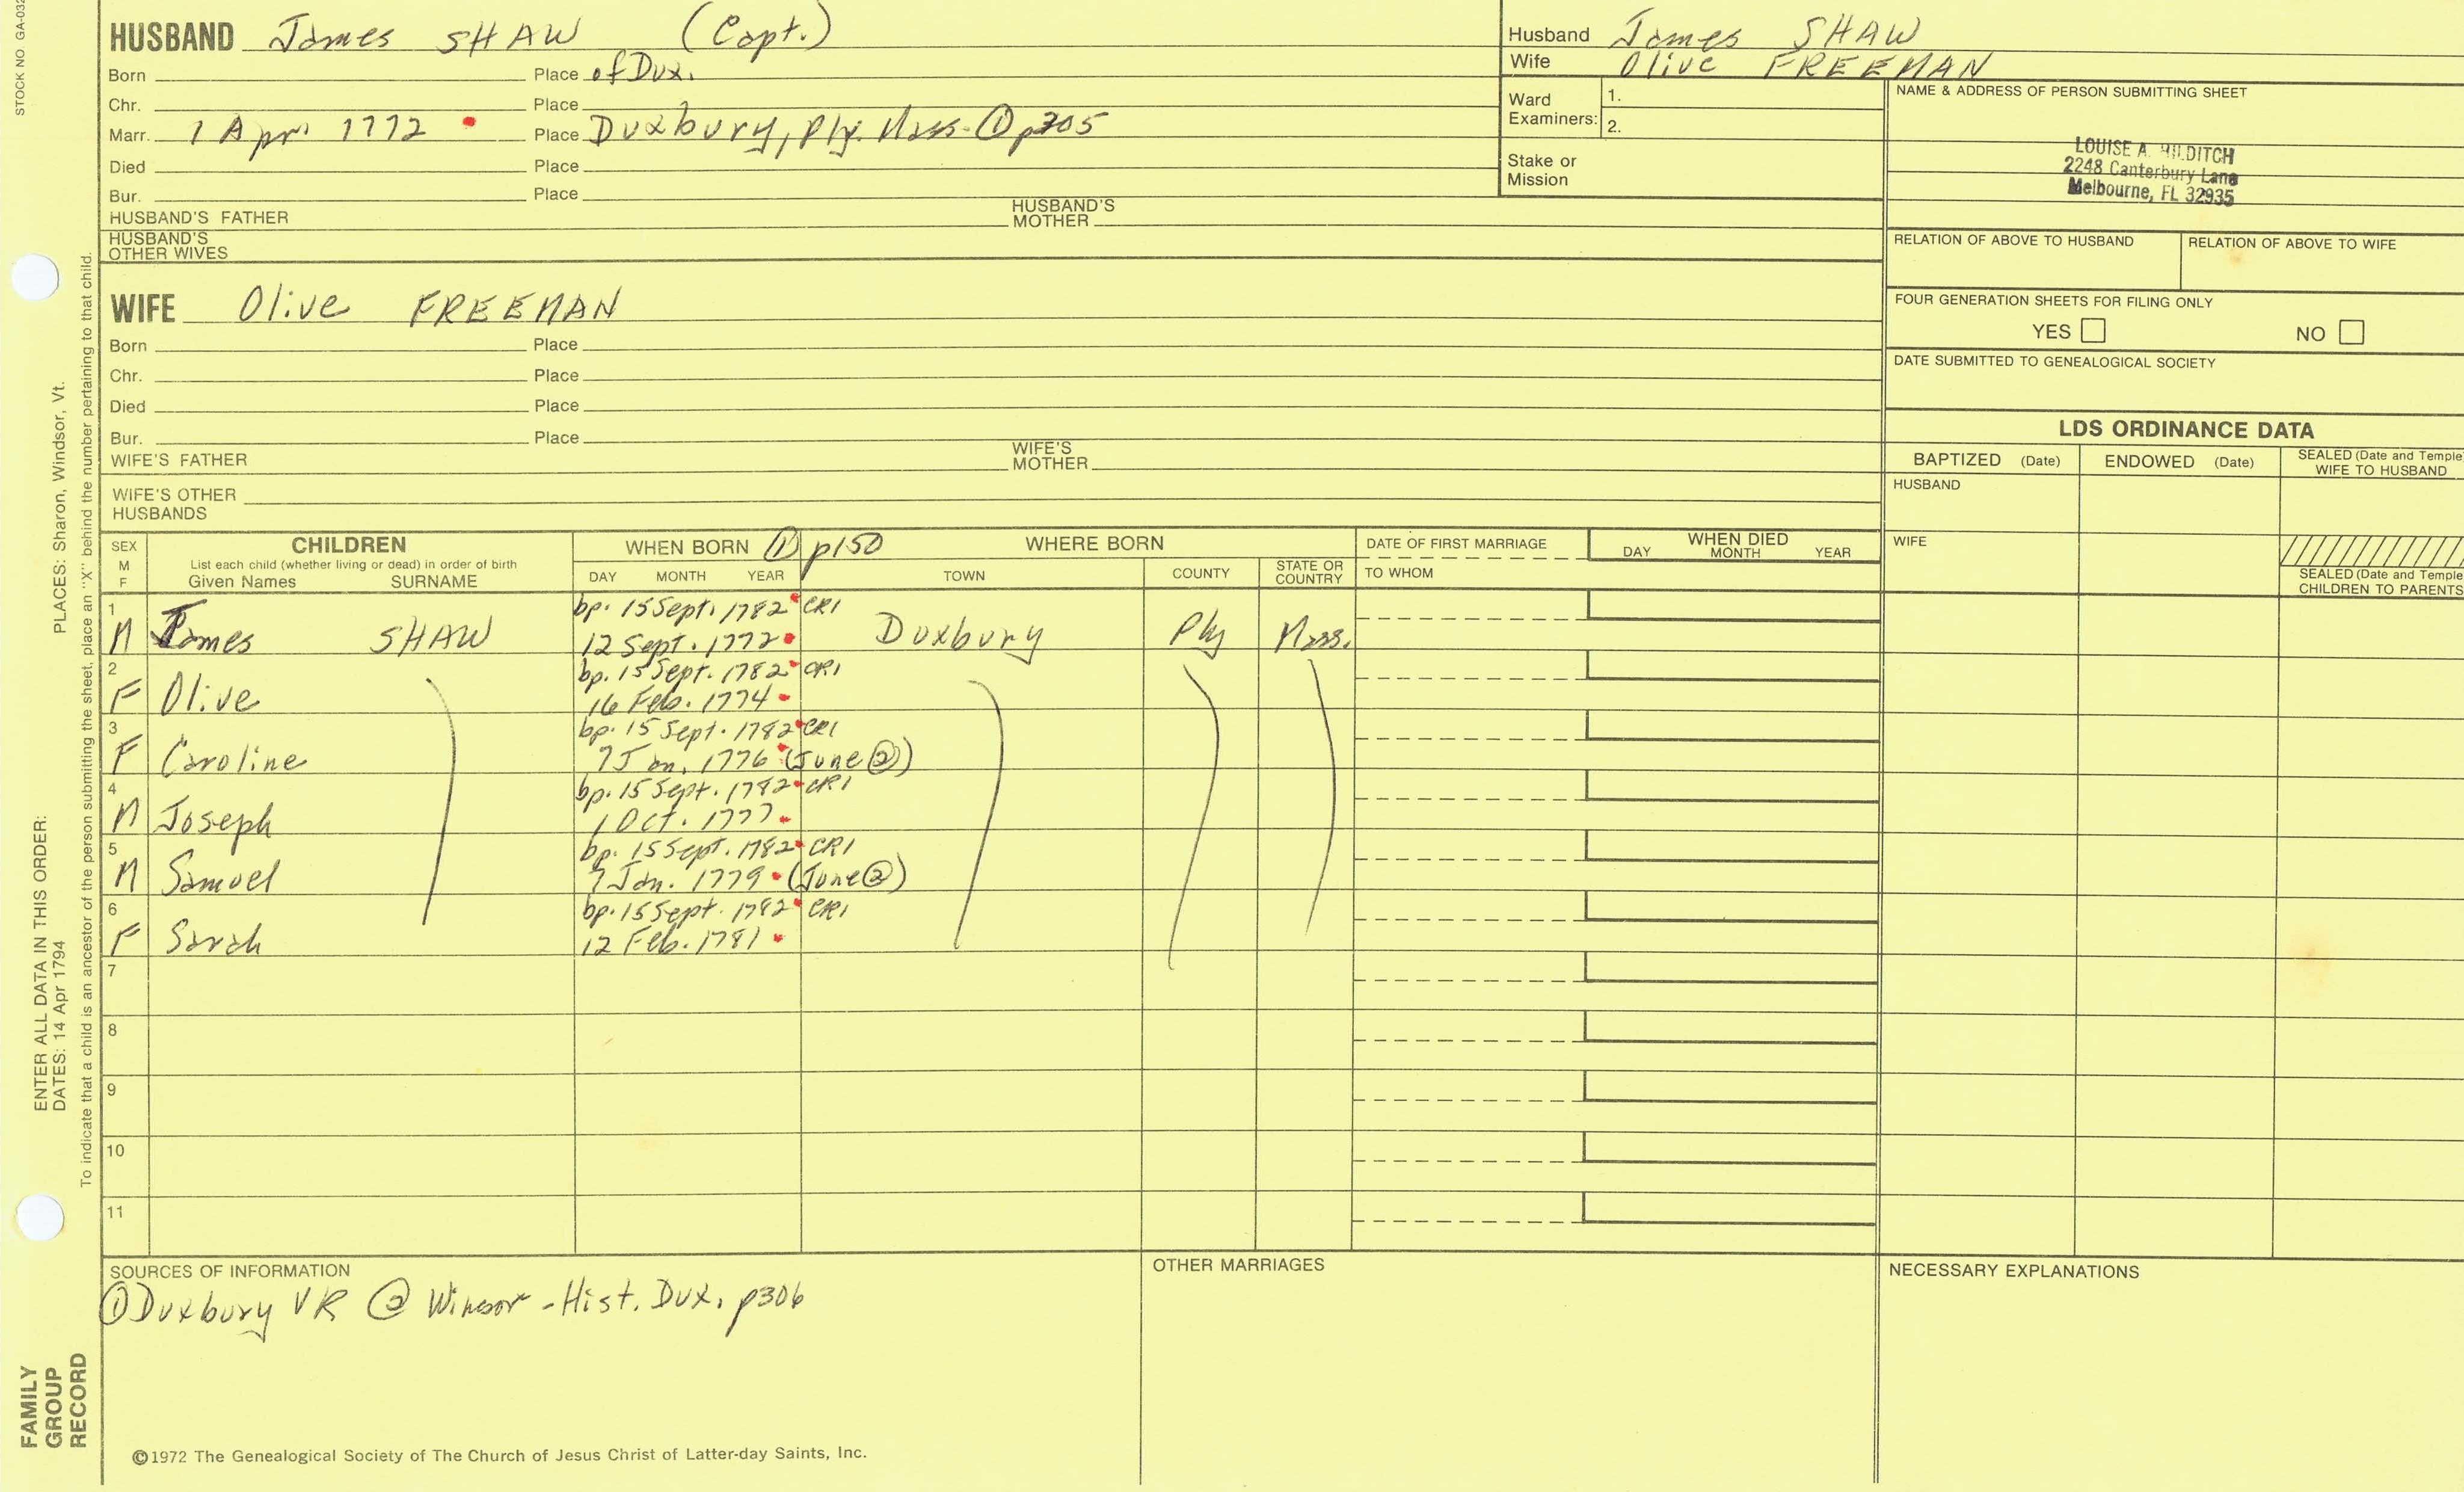 STOCK NO. GA-032
HUSBAND James SHAW (Capt.)
Born Place of Dux.
Chr. Place
Marr. 1 Apr 1772 Place Duxbury, Ply. Mass. ① p305
Died Place
Bur. Place
HUSBAND'S FATHER HUSBAND'S MOTHER
HUSBAND'S OTHER WIVES
Husband James SHAW
Wife Olive FREEMAN
Ward Examiners: 1.
2.
Stake or Mission
NAME & ADDRESS OF PERSON SUBMITTING SHEET
LOUISE A. HILDITCH
2248 Canterbury Lane
Melbourne, FL 32935
RELATION OF ABOVE TO HUSBAND RELATION OF ABOVE TO WIFE
FOUR GENERATION SHEETS FOR FILING ONLY
YES NO
DATE SUBMITTED TO GENEALOGICAL SOCIETY
WIFE Olive FREEMAN
Born Place
Chr. Place
Died Place
Bur. Place
WIFE'S FATHER WIFE'S MOTHER
WIFE'S OTHER HUSBANDS
LDS ORDINANCE DATA
BAPTIZED (Date) ENDOWED (Date) SEALED (Date and Temple
WIFE TO HUSBAND
HUSBAND
WIFE
SEALED (Date and Temple
CHILDREN TO PARENTS
SEX M F
CHILDREN
List each child (whether living or dead) in order of birth
Given Names SURNAME
WHEN BORN ① p150
DAY MONTH YEAR
WHERE BORN
TOWN COUNTY STATE OR COUNTRY
DATE OF FIRST MARRIAGE
TO WHOM
WHEN DIED
DAY MONTH YEAR
1 bp. 15 Sept. 1782 CR1
M James SHAW 12 Sept. 1772 Duxbury Ply Mass.
2 bp. 15 Sept. 1782 CR1
F Olive 16 Feb. 1774
3 bp. 15 Sept. 1782 CR1
F Caroline 7 Jan. 1776 (June ②)
4 bp. 15 Sept. 1782 CR1
M Joseph 1 Oct. 1777
5 bp. 15 Sept. 1782 CR1
M Samuel 7 Jan. 1779 (June ②)
6 bp. 15 Sept. 1782 CR1
F Sarah 12 Feb. 1781
7
8
9
10
11
SOURCES OF INFORMATION
① Duxbury VR ② Winsor - Hist. Dux. p306
OTHER MARRIAGES
NECESSARY EXPLANATIONS
©1972 The Genealogical Society of The Church of Jesus Christ of Latter-day Saints, Inc.
FAMILY
GROUP
RECORD
ENTER ALL DATA IN THIS ORDER:
DATES: 14 Apr 1794
PLACES: Sharon, Windsor, Vt.
To indicate that a child is an ancestor of the person submitting the sheet, place an "X" behind the number pertaining to that child.